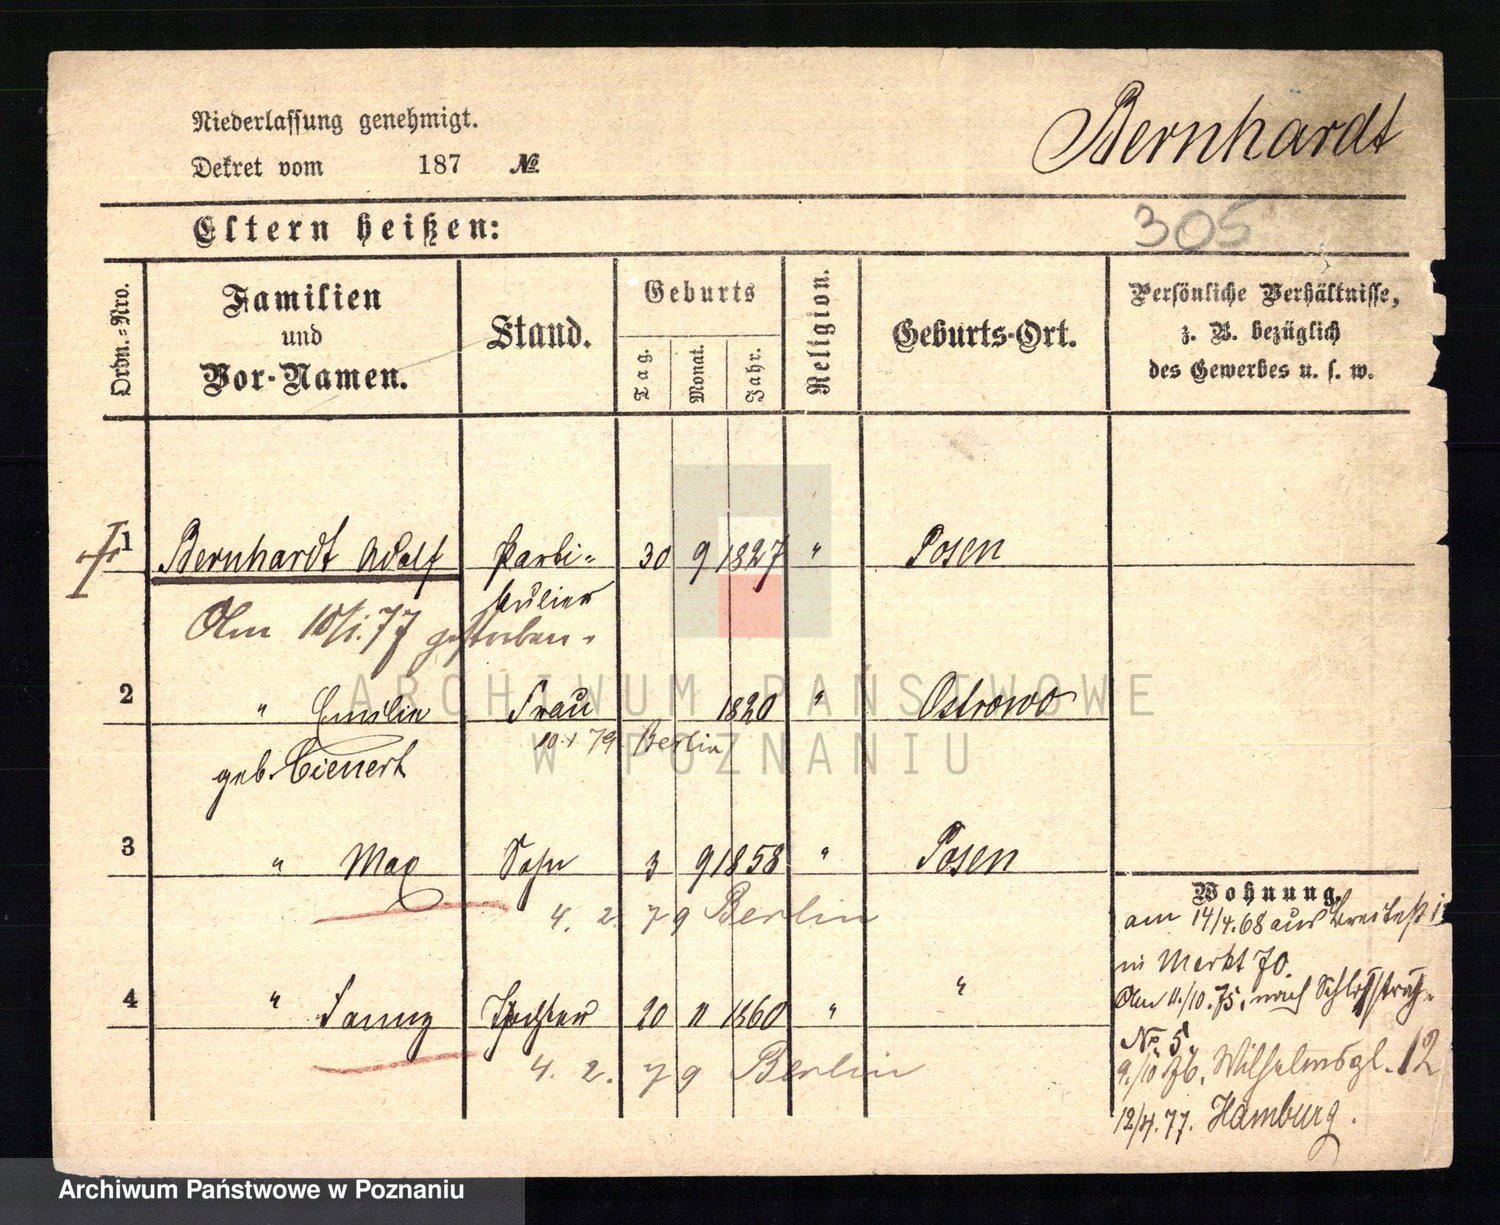 Niederlassung genehmigt.
Bernhardt
Dekret vom 187 No.
Eltern heißen:
305
Ordn.-Nro.
Familien und Vor-Namen.
Stand.
Geburts
Tag.
Monat.
Jahr.
Religion.
Geburts-Ort.
Persönliche Verhältnisse,
z. B. bezüglich
des Gewerbes u. s. w.
1 Bernhardt Adolf Parti- 30 9 1827 " Posen
kulier
Am 10/1.77 gestorben.
2 " Emilie Frau 1820 " Ostrowo
79 Berlin
geb.
3 " Max Sohn 3 9 1858 " Posen
4. 2. 79 Berlin
4 " Fanny Tochter 20 11 1860 " "
4. 2. 79 Berlin
Wohnung.
am 14/4.68 aus Breitestr
in Markt 70.
Am 11./10.75. nach Schloßstraße
No. 5.
9./10 76. Wilhelmspl. 12
77. Hamburg.
ARCHIWUM PAŃSTWOWE
W POZNANIU
Archiwum Państwowe w Poznaniu